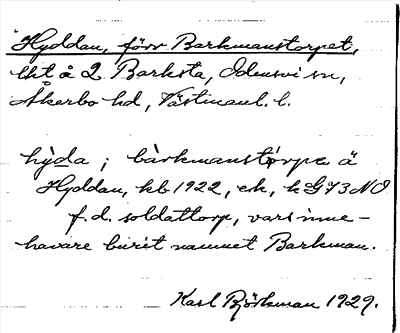 Hyddan, förr Barkmanstorpet,
lht å 2 Barksta, Odensvi sn,
Åkerbo hd, Västmanl. l.
hy̍da ; bàrkmanstɷrpe ä
Hyddan, kb 1922, ek, k G73 NO
f.d. soldattorp, vars inne-
havare burit namnet Barkman.
Karl Björkman 1929.